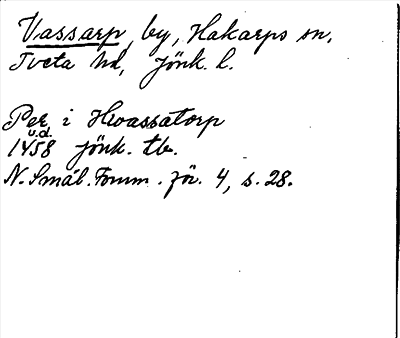 Vassarp, by, Hakarps sn,
Tveta hd, Jönk. l.
Per i Hwassatorp
u.d.
1458 Jönk. tb.
N. Smål. Fornm. för. 4, s. 28.